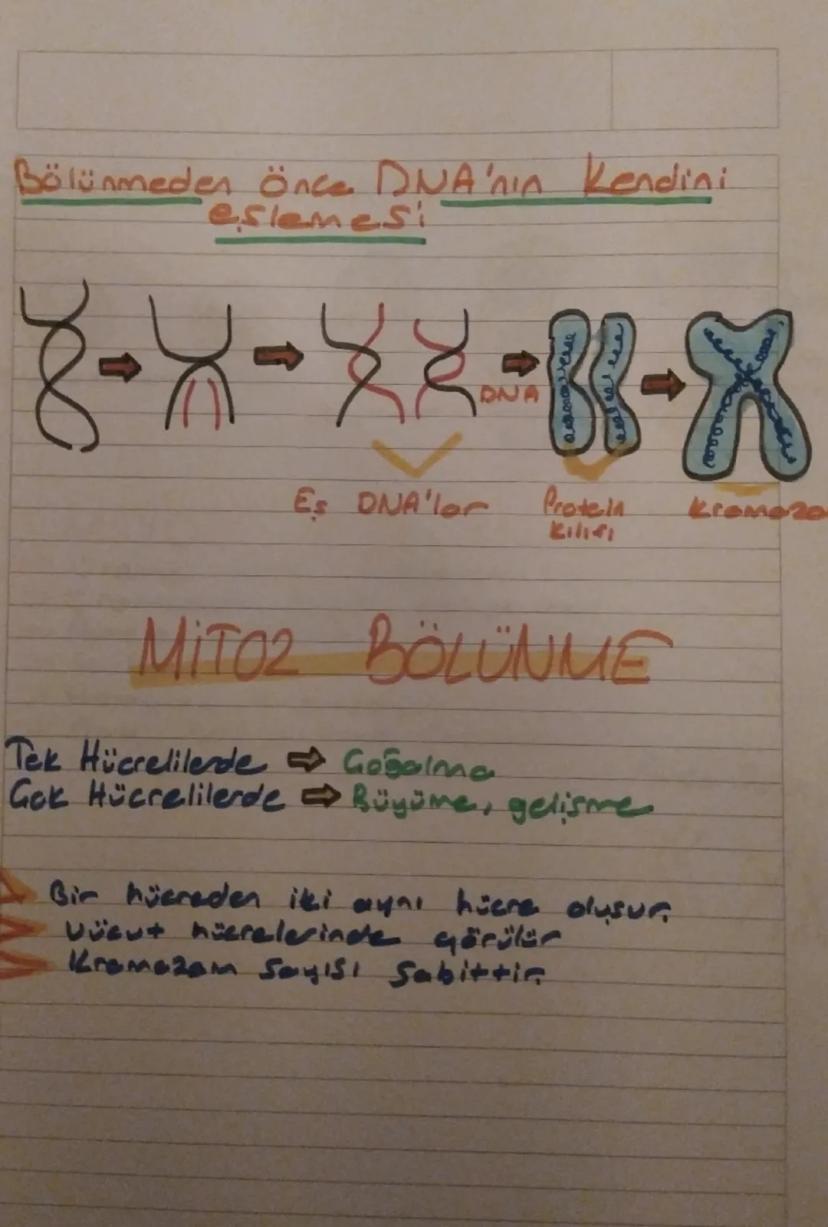 Bölünmeden Önce DNA'nın Kendini
eşlemesi
DNA
Eş DNA'lar
Protein
Kılıfı
Kromozo
MİTOZ BÖLÜNME
Tek Hücrelilerde ⇒ Çoğalma
Çok Hücrelilerde ⇒ Büyüme, gelişme
Bir hücreden iki aynı hücre oluşur.
Vücut hücrelerinde görülür
Kromozom Sayısı Sabittir.